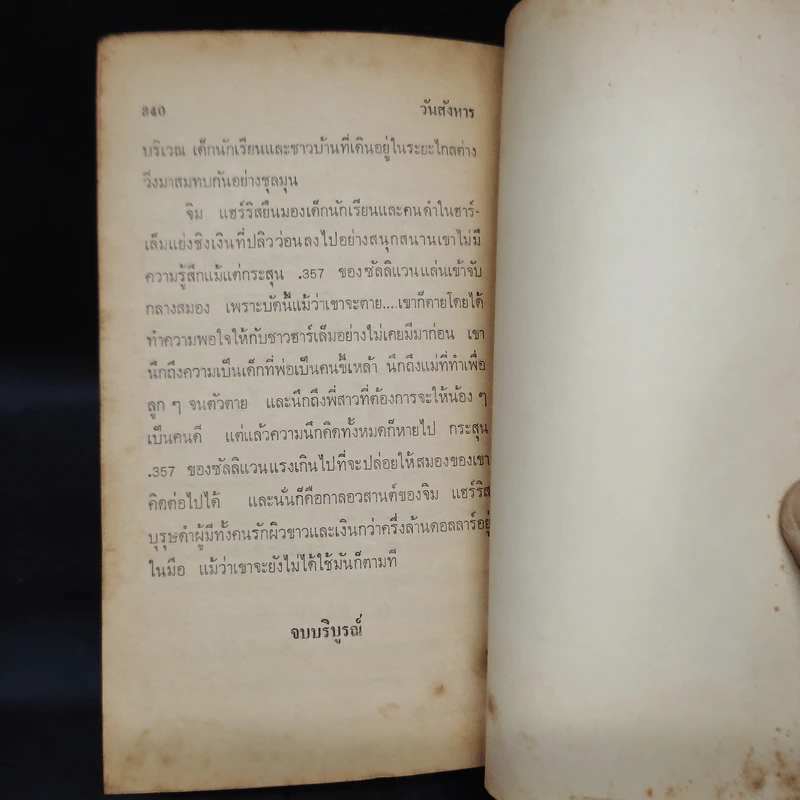 340 วันสังหาร
บริเวณ เด็กนักเรียนและชาวบ้านที่เดินอยู่ในระยะไกลต่าง
วิ่งมาสมทบกันอย่างชุลมุน
จิม แฮร์ริสยืนมองเด็กนักเรียนและคนดำในฮาร์-
เล็มแย่งชิงเงินที่ปลิวว่อนลงไปอย่างสนุกสนานเขาไม่มี
ความรู้สึกแม้แต่กระสุน .357 ของซัลลิแวนแล่นเข้าจับ
กลางสมอง เพราะบัดนี้แม้ว่าเขาจะตาย....เขาก็ตายโดยได้
ทำความพอใจให้กับชาวฮาร์เล็มอย่างไม่เคยมีมาก่อน เขา
นึกถึงความเป็นเด็กที่พ่อเป็นคนขี้เหล้า นึกถึงแม่ที่ทำเพื่อ
ลูก ๆ จนตัวตาย และนึกถึงพี่สาวที่ต้องการจะให้น้อง ๆ
เป็นคนดี แต่แล้วความนึกคิดทั้งหมดก็หายไป กระสุน
.357 ของซัลลิแวนแรงเกินไปที่จะปล่อยให้สมองของเขา
คิดต่อไปได้ และนั่นก็คือกาลอวสานต์ของจิม แฮร์ริส
บุรุษดำผู้มีทั้งคนรักผิวขาวและเงินกว่าครึ่งล้านดอลลาร์อยู่
ในมือ แม้ว่าเขาจะยังไม่ได้ใช้มันก็ตามที
จบบริบูรณ์